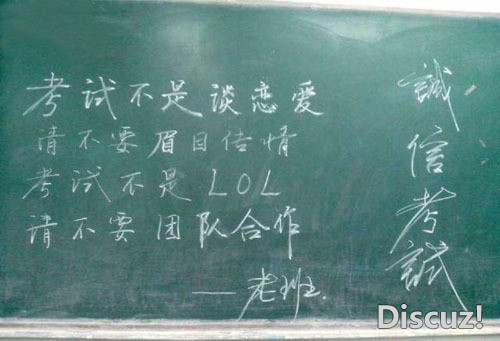 考试不是谈恋爱
请不要眉目传情
考试不是LOL
请不要团队合作
——老班.
誠信考試
Discuz!